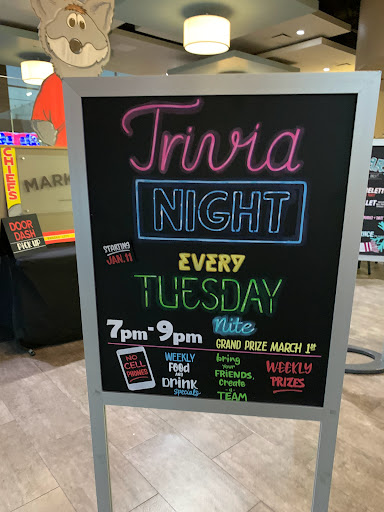 Trivia
NIGHT
STARTING
JAN. 11
EVERY
TUESDAY
Nite
7pm-9pm
GRAND PRIZE MARCH 1st
NO
CELL
PHONES
WEEKLY
FOOD
AND
DRINK
specials
bring
your
FRIENDS,
Create
a
TEAM
WEEKLY
PRIZES
CHIEFS
MARK
DOOR
DASH
PICK UP